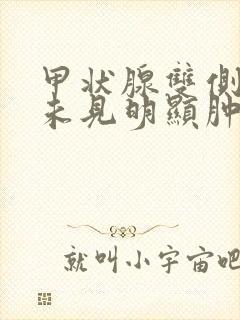 甲狀腺雙側
未見明顯肿
就叫小宇宙吧